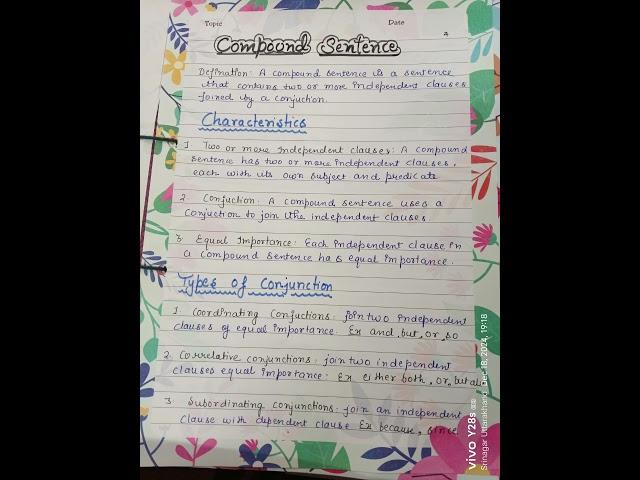 Topic Date
Compound Sentence
Defination: A compound sentence is a sentence
that contains two or more independent clauses
joined by a conjuction.
Characteristics
1 Two or more Independent clauses: A compound
sentence has two or more independent clauses,
each with its own subject and predicate
2. Conjuction. A compound sentence uses a
conjuction to join the independent clauses
3 Equal Importance: Each independent clause in
a compound sentence has equal importance.
Types of Conjunction
1. Coordinating Conjuctions: join two independent
clauses of equal importance. Ex and, but, or, so
2. Correlative conjunctions: join two independent
clauses equal importance: Ex either both, or, but al
3. Subordinating conjunctions. join an independent
clause with dependent clause Ex because, since
vivo Y28s
Srinagar Uttarakhand, Dec 18, 2024, 19:18